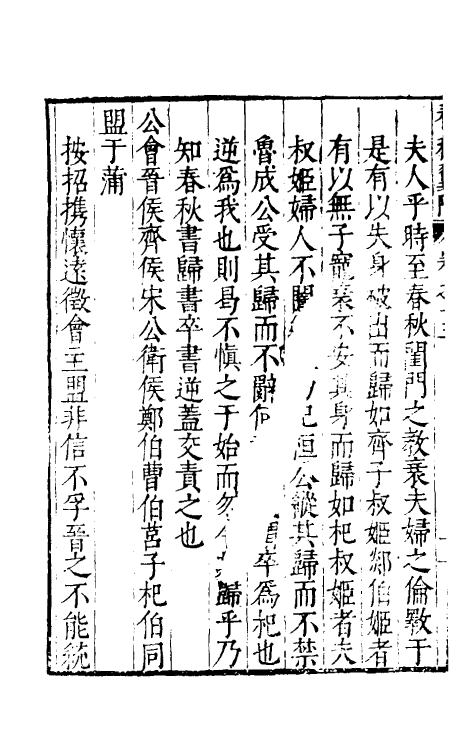 夫人乎時至春秋閨門之教衰夫婦之倫斁于
是有以失身破出而歸如齊子叔姬郯伯姬者
有以無子寵衰不安其身而歸如杞叔姬者夫
叔姬婦人不閑 杞桓公縱其歸而不禁
魯成公受其歸而不辭何 書卒為杞也
逆為我也則曷不慎之于始而勿令其歸乎乃
知春秋書歸書卒書逆蓋交責之也
公會晉侯齊侯宋公衛侯鄭伯曹伯莒子杞伯同
盟于蒲
按招攜懷遠徵會主盟非信不孚晉之不能統